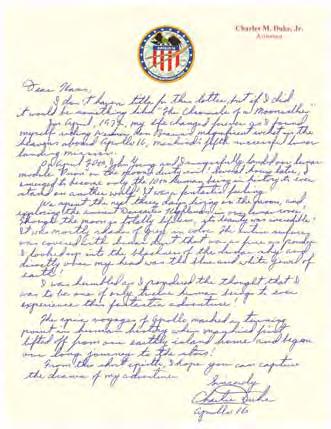 Charles M. Duke, Jr.
Astronaut
Dear Hans,
I don't have a title for this letter, but if I did
it would be something like "The Chronicle of a Moonwalker"
In April, 1972, my life changed forever as I found
myself riding
magnificent
in the
heavens aboard Apollo 16, mankind's fifth successful lunar
landing mission.
On April
John Young and I
landed our lunar
module "Orion" on the
dusty
and several hours later, I
emerged to become only the 10th human being in history to ever
stand on another world. It was a fantastic feeling!
We spent the next three days living on the moon, and
explored the
Descartes Highlands
Though the moon is totally lifeless, its beauty was
It was mostly shades of grey in color. The entire surface
was covered with lunar dust that was as fine as powder.
I looked up into the blackness of the
sky and
directly over my head was the blue and white jewel of
earth!
I was humbled as I pondered the thought that I
was to be one of only twelve human beings to ever
experience this fantastic adventure!
The epic voyages of Apollo marked a turning
point in human destiny when mankind first
lifted off from our earthly island home and began
our long journey to the stars!
From this short epistle, I hope you can capture
the drama of my adventure.
Sincerely
Charlie Duke
Apollo 16